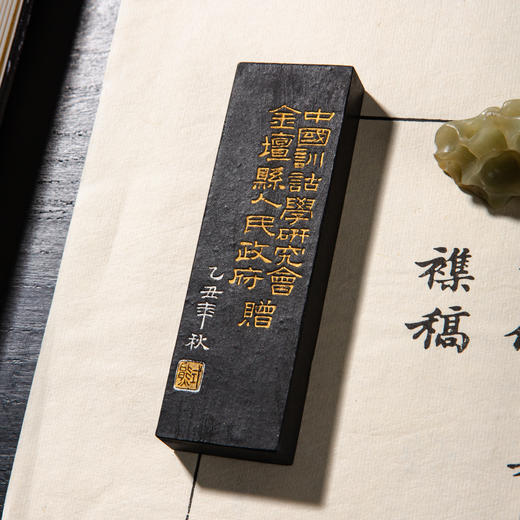 中國訓詁學研究會
金壇縣人民政府 贈
乙丑年秋
襍稿